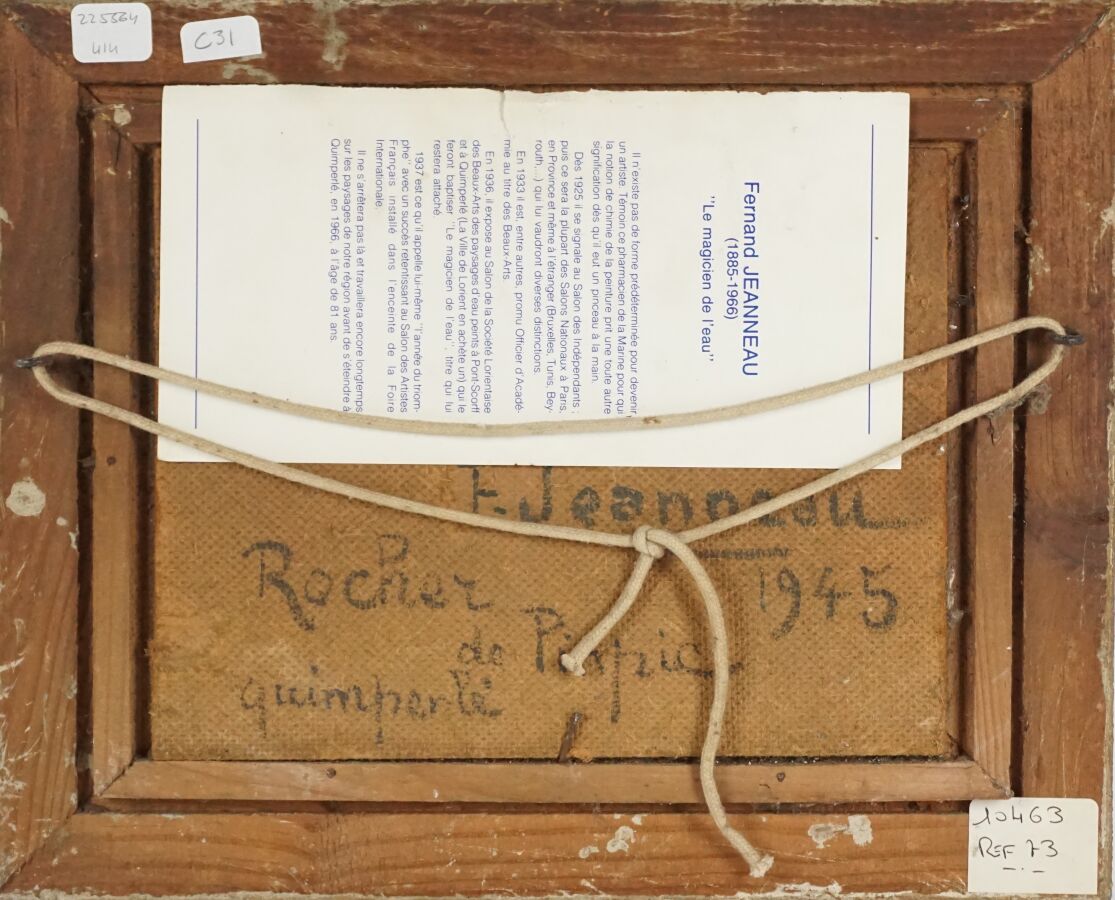 225564
414
C31
Fernand JEANNEAU
(1885-1966)
"Le magicien de l'eau"
Il n'existe pas de forme prédéterminée pour devenir
un artiste. Témoin ce pharmacien de la Marine pour qui
la notion de chimie de la peinture prit une toute autre
signification dès qu'il eut un pinceau à la main.
Dès 1925 il se signale au Salon des Indépendants ;
puis ce sera la plupart des Salons Nationaux à Paris,
en Province et même à l'étranger (Bruxelles, Tunis, Bey-
routh...) qui lui vaudront diverses distinctions.
En 1933 il est, entre autres, promu Officier d'Acadé-
mie au titre des Beaux-Arts.
En 1936, il expose au Salon de la Société Lorientaise
des Beaux-Arts des paysages d'eau peints à Pont-Scorff
et à Quimperlé (La Ville de Lorient en achète un) qui le
feront baptiser "Le magicien de l'eau", titre qui lui
restera attaché.
1937 est ce qu'il appelle lui-même "l'année du triom-
phe" avec un succès retentissant au Salon des Artistes
Français installé dans l'enceinte de la Foire
Internationale.
Il ne s'arrêtera pas là et travaillera encore longtemps
sur les paysages de notre région avant de s'éteindre à
Quimperlé, en 1966, à l'âge de 81 ans.
F. Jeanneau
1945
Rocher
de
quimperlé
10463
REF 73